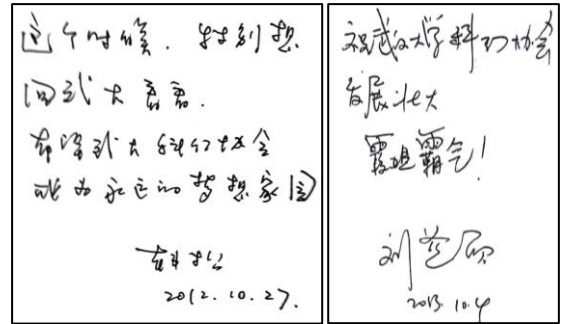 这个时候，特别想
回武大看看.
希望武大科幻协会
成为永远的梦想家园
2012.10.27.
祝武汉大学科幻协会
发展壮大
霸王霸气！
2013.10.4